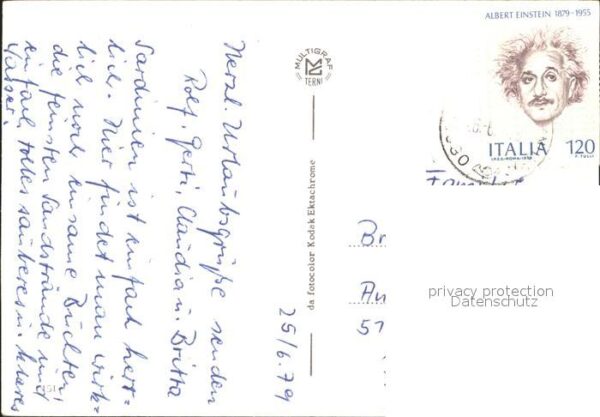 Herzl. Urlaubsgrüße senden
Rolf, Gerti, Claudia u. Britta
Sardinien ist einfach herr-
lich. Hier findet man wirk-
lich noch einsame Buchten,
die feinsten Sandstrände und
einfach tolles sauberes u. klares
Wasser.
29/6.79
MULTIGRAF
TERNI
da fotocolor Kodak Ektachrome
ALBERT EINSTEIN 1879-1955
ITALIA 120
I.P.Z.S.-ROMA-1979
F. TULLI
Br
An
57
privacy protection
Datenschutz